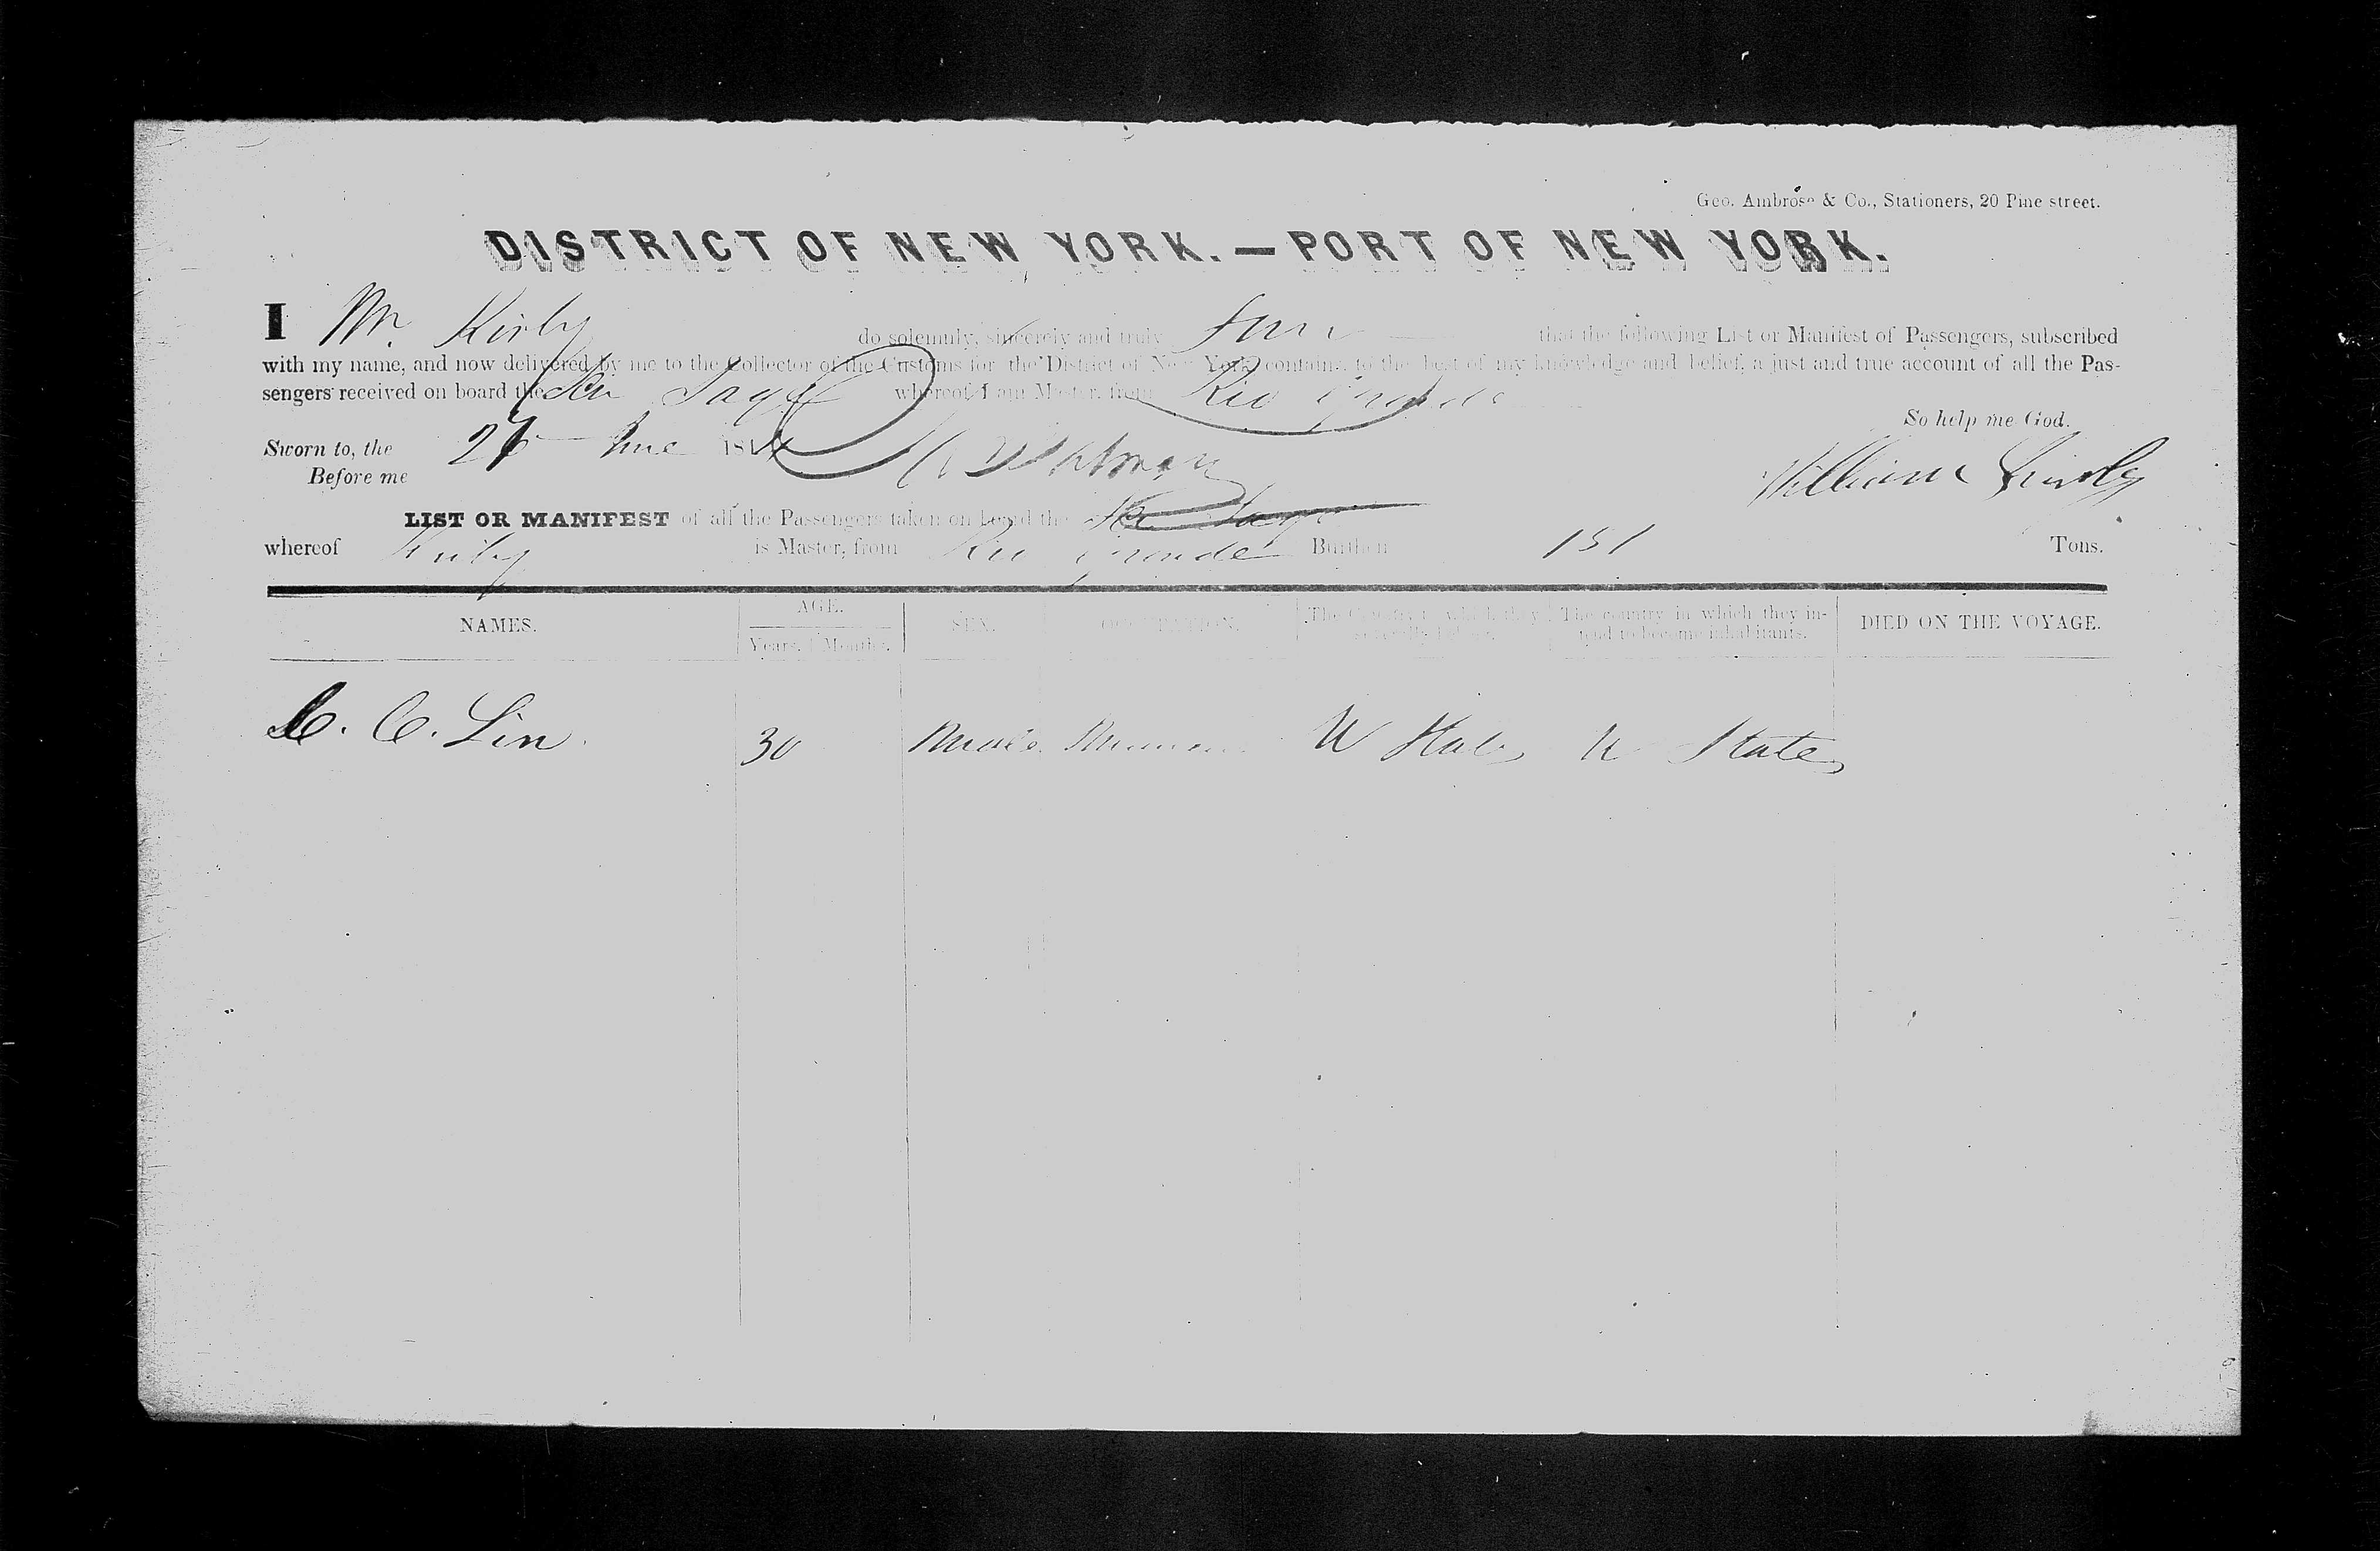 Geo. Ambrose & Co., Stationers, 20 Pine street.
DISTRICT OF NEW YORK.—PORT OF NEW YORK.
I Wm. Kirby do solemnly, sincerely and truly that the following List or Manifest of Passengers, subscribed
with my name, and now delivered by me to the Collector of the Customs for the District of New York contains, to the best of my knowledge and belief, a just and true account of all the Pas-
sengers received on board the whereof I am Master, from Rio Grande
So help me God.
Sworn to, the June 18
Before me
William Kirby
LIST OR MANIFEST of all the Passengers taken on board the
whereof Kirby is Master, from Rio Grande Burthen 151 Tons.
NAMES. AGE. SEX. OCCUPATION. The Country to which they severally belong. The country in which they in-
tend to become inhabitants. DIED ON THE VOYAGE.
Years. Months.
C. Lin 30 Male U States U States